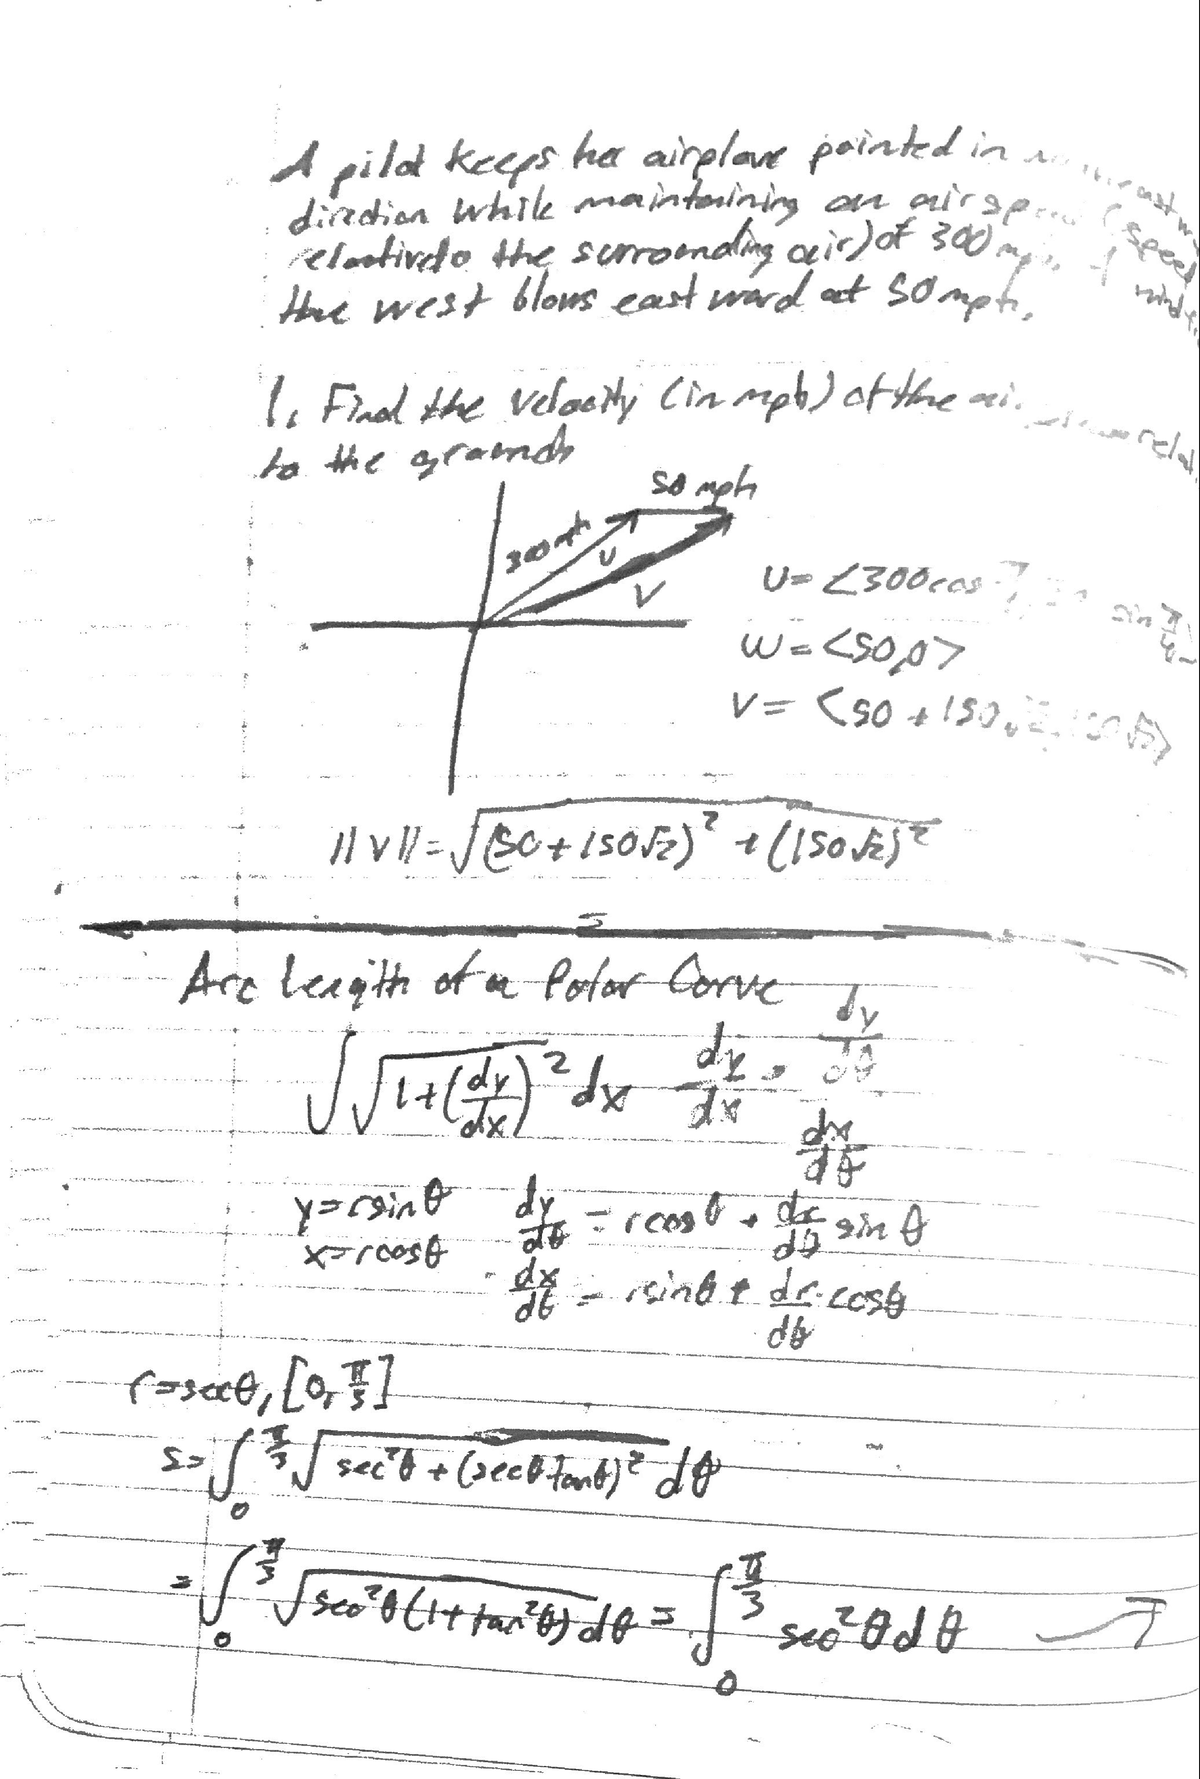 A pilot keeps her airplane pointed in
direction while maintaining an airspeed (speed
relative to the surrounding air) of 300 mph.
the west blows eastward at 50 mph.
1. Find the velocity (in mph) of the
to the ground
50 mph
300 mph
U
V
U = <300cos sin π/4>
W = <50,0>
V = <50 + 150√2, 150√2>
||V|| = √((50 + 150√2)² + (150√2)²)
Arc Length of a Polar Curve
∫√(1+(dy/dx)²) dx   dy/dx = (dy/dθ)/(dx/dθ)
y = r sin θ   dy/dθ = r cos θ + dr/dθ sin θ
x = r cos θ   dx/dθ = -r sin θ + dr/dθ cos θ
r = sec θ, [0, π/3]
s = ∫₀^(π/3) √(sec²θ + (secθ tanθ)²) dθ
= ∫₀^(π/3) √(sec²θ(1 + tan²θ)) dθ = ∫₀^(π/3) sec²θ dθ →